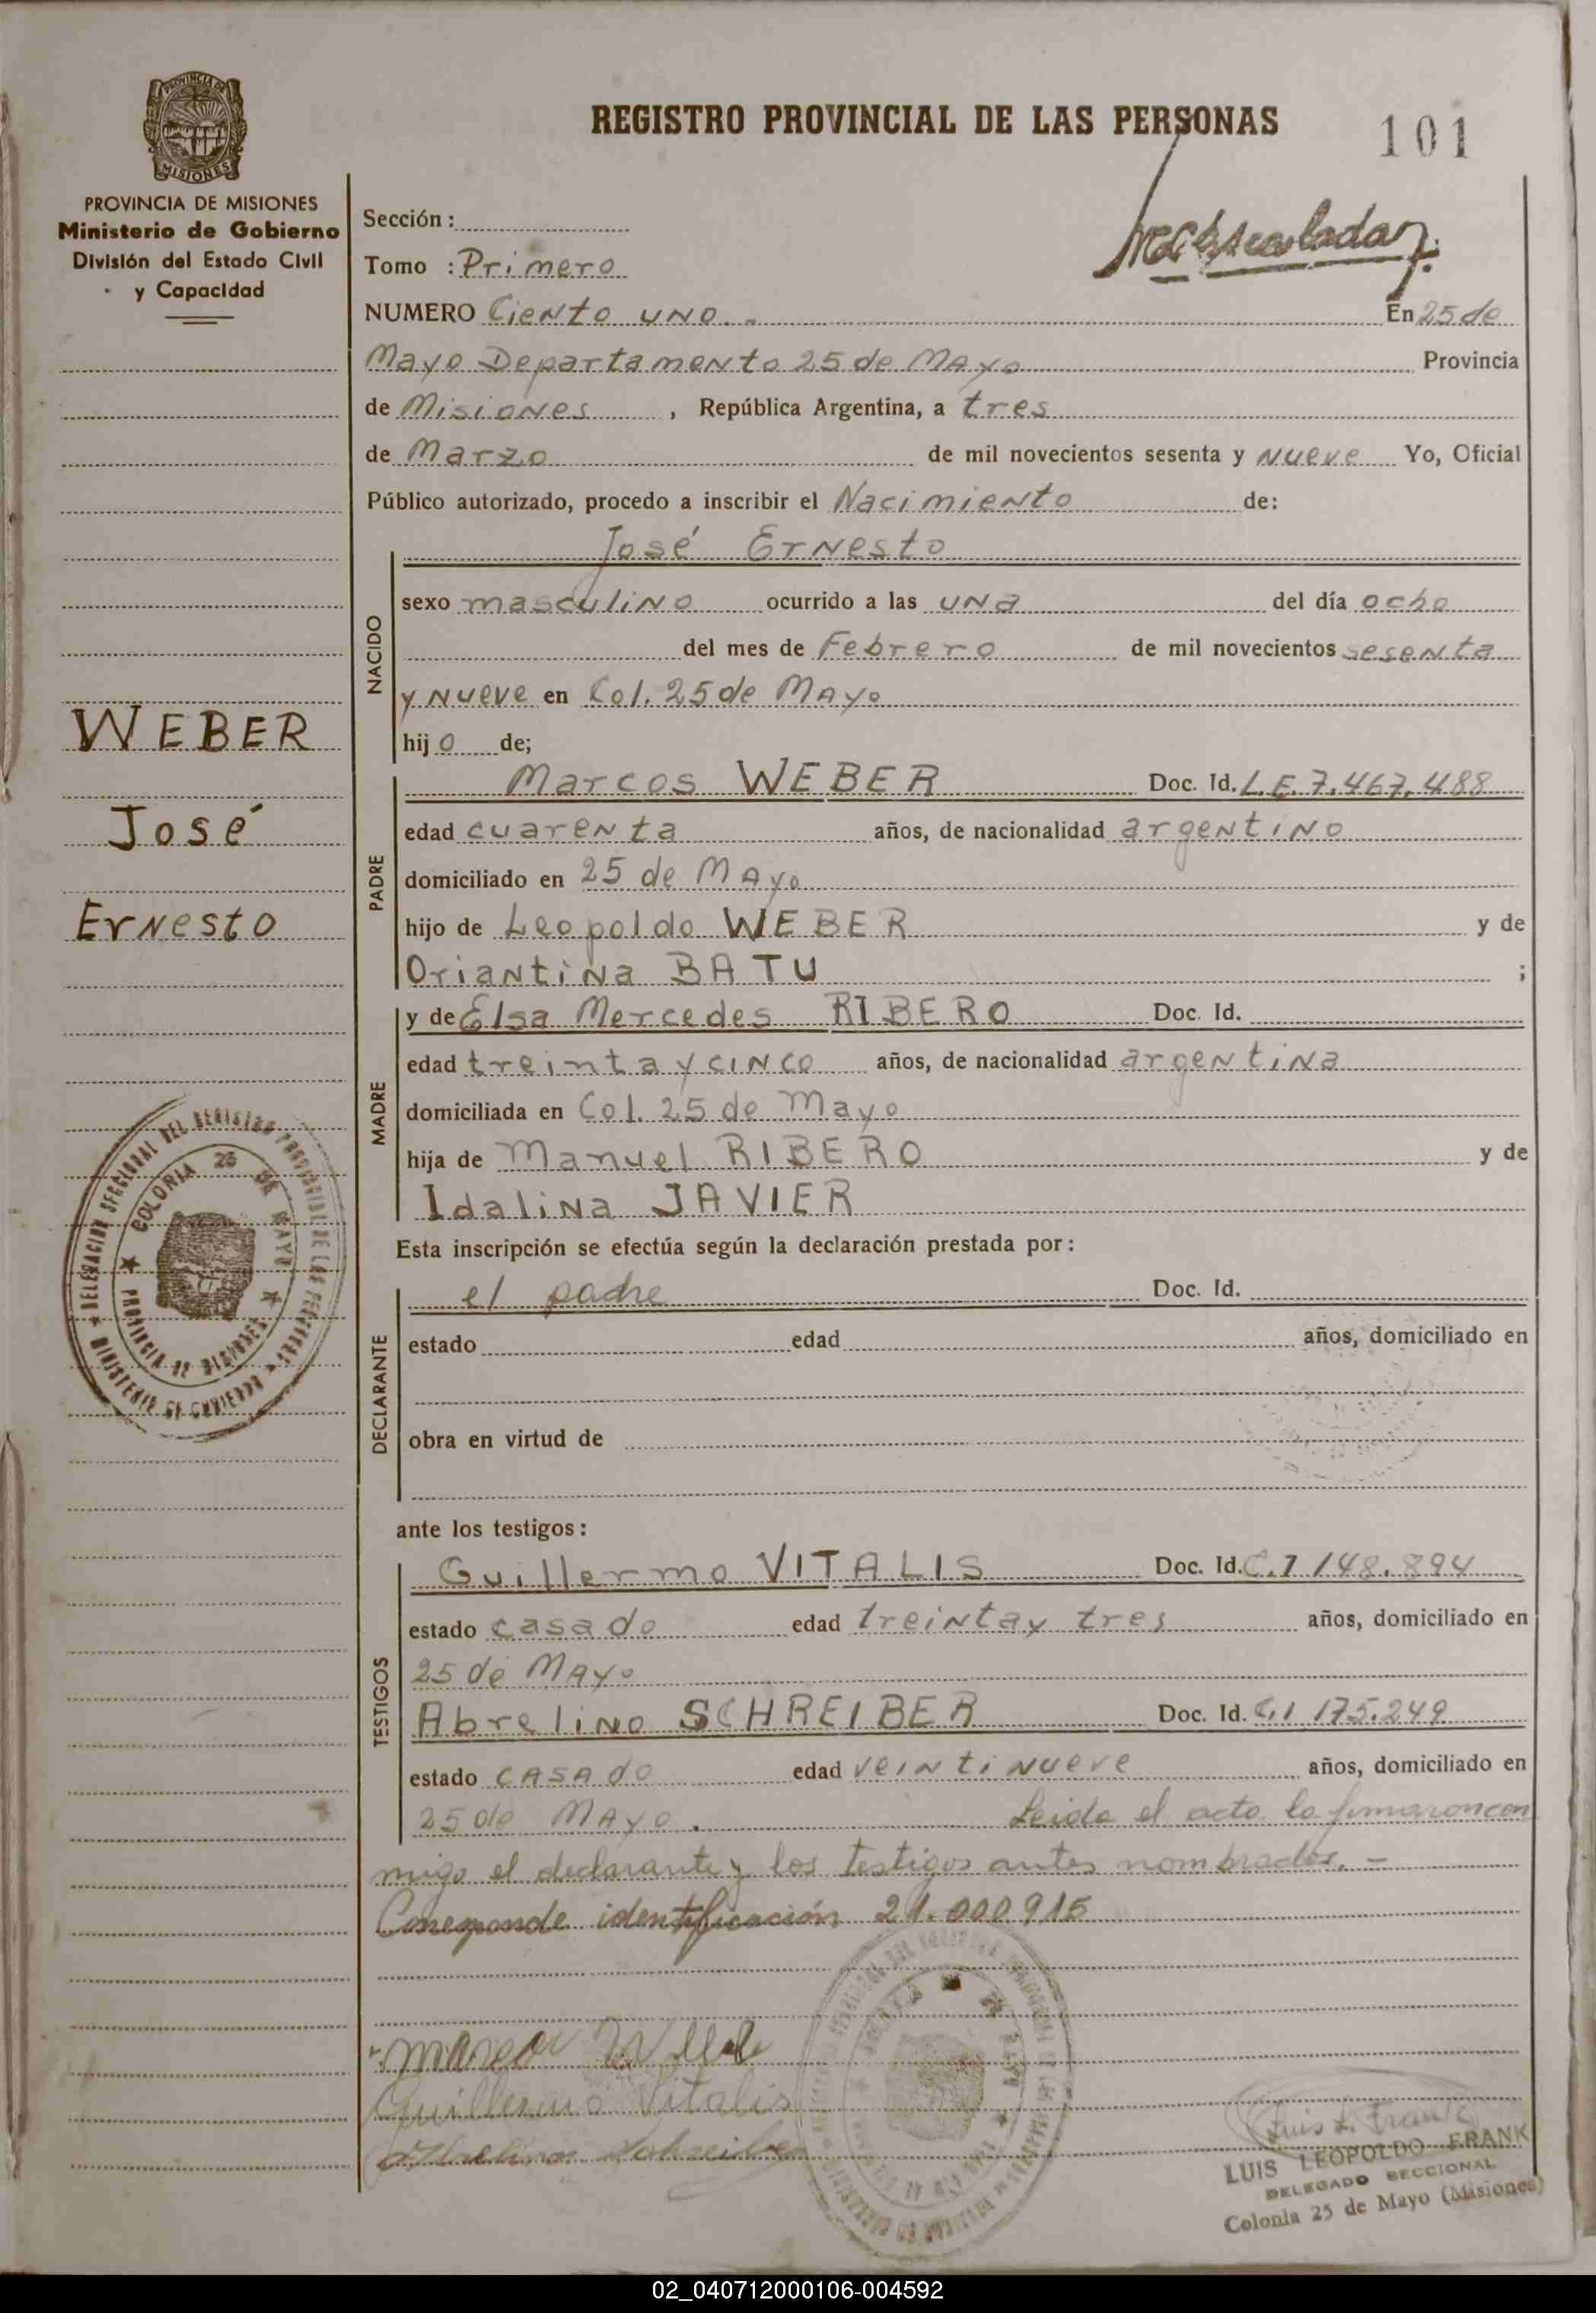 REGISTRO PROVINCIAL DE LAS PERSONAS
101
PROVINCIA DE
MISIONES
PROVINCIA DE MISIONES
Ministerio de Gobierno
División del Estado Civil
y Capacidad
Sección :
Tomo : Primero
NUMERO Ciento uno. - En 25 de
Mayo Departamento 25 de Mayo Provincia
de Misiones , República Argentina, a tres
de Marzo de mil novecientos sesenta y nueve Yo, Oficial
Público autorizado, procedo a inscribir el Nacimiento de:
NACIDO
José Ernesto
sexo masculino ocurrido a las una del día ocho
del mes de Febrero de mil novecientos sesenta
y nueve en Col. 25 de Mayo
hij o de;
WEBER
José
Ernesto
PADRE
Marcos WEBER Doc. Id. L.E. 7.467.488
edad cuarenta años, de nacionalidad argentino
domiciliado en 25 de Mayo
hijo de Leopoldo WEBER y de
Oriantina BATU ;
MADRE
y de Elsa Mercedes RIBERO Doc. Id.
edad treinta y cinco años, de nacionalidad argentina
domiciliada en Col. 25 de Mayo
hija de Manuel RIBERO y de
Idalina JAVIER
Esta inscripción se efectúa según la declaración prestada por :
DECLARANTE
el padre Doc. Id.
estado edad años, domiciliado en
obra en virtud de
DELEGACION SECCIONAL DEL REGISTRO PROVINCIAL DE LAS PERSONAS
MINISTERIO DE GOBIERNO
COLONIA 25 DE MAYO
PROVINCIA DE MISIONES
ante los testigos :
TESTIGOS
Guillermo VITALIS Doc. Id. C.I 148.894
estado casado edad treinta y tres años, domiciliado en
25 de Mayo
Abrelino SCHREIBER Doc. Id. C.I 175.249
estado casado edad veintinueve años, domiciliado en
25 de Mayo. Leida el acta la firmaron con
migo el declarante y los testigos antes nombrados. -
Corresponde identificación 21.000.915
Guillermo Vitalis
Abrelino Schreiber
Luis L. Frank
LUIS LEOPOLDO FRANK
DELEGADO SECCIONAL
Colonia 25 de Mayo (Misiones)
02_040712000106-004592